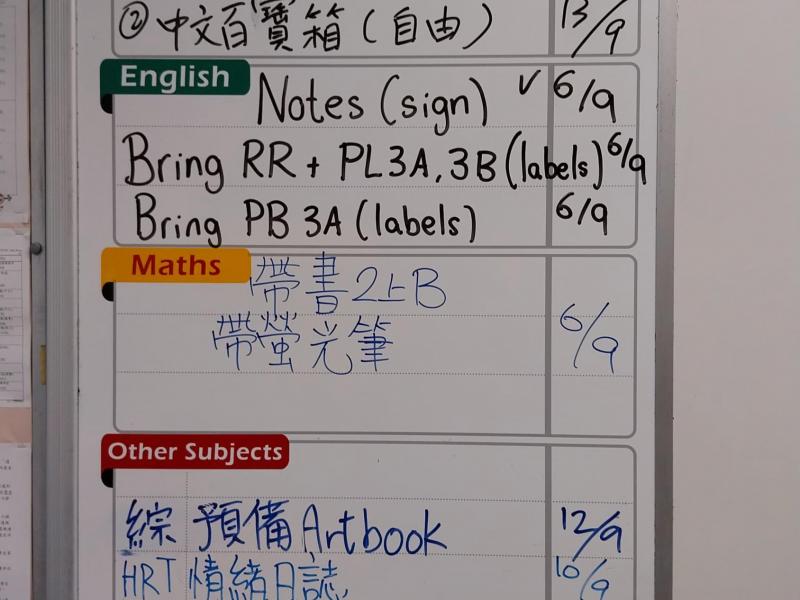 ② 中文百寶箱(自由) 13/9
English
Notes (sign) ✓ 6/9
Bring RR + PL3A, 3B (labels) 6/9
Bring PB 3A (labels) 6/9
Maths
帶書2上B
帶螢光筆 6/9
Other Subjects
綜 預備Artbook 12/9
HRT 情緒日誌 10/9